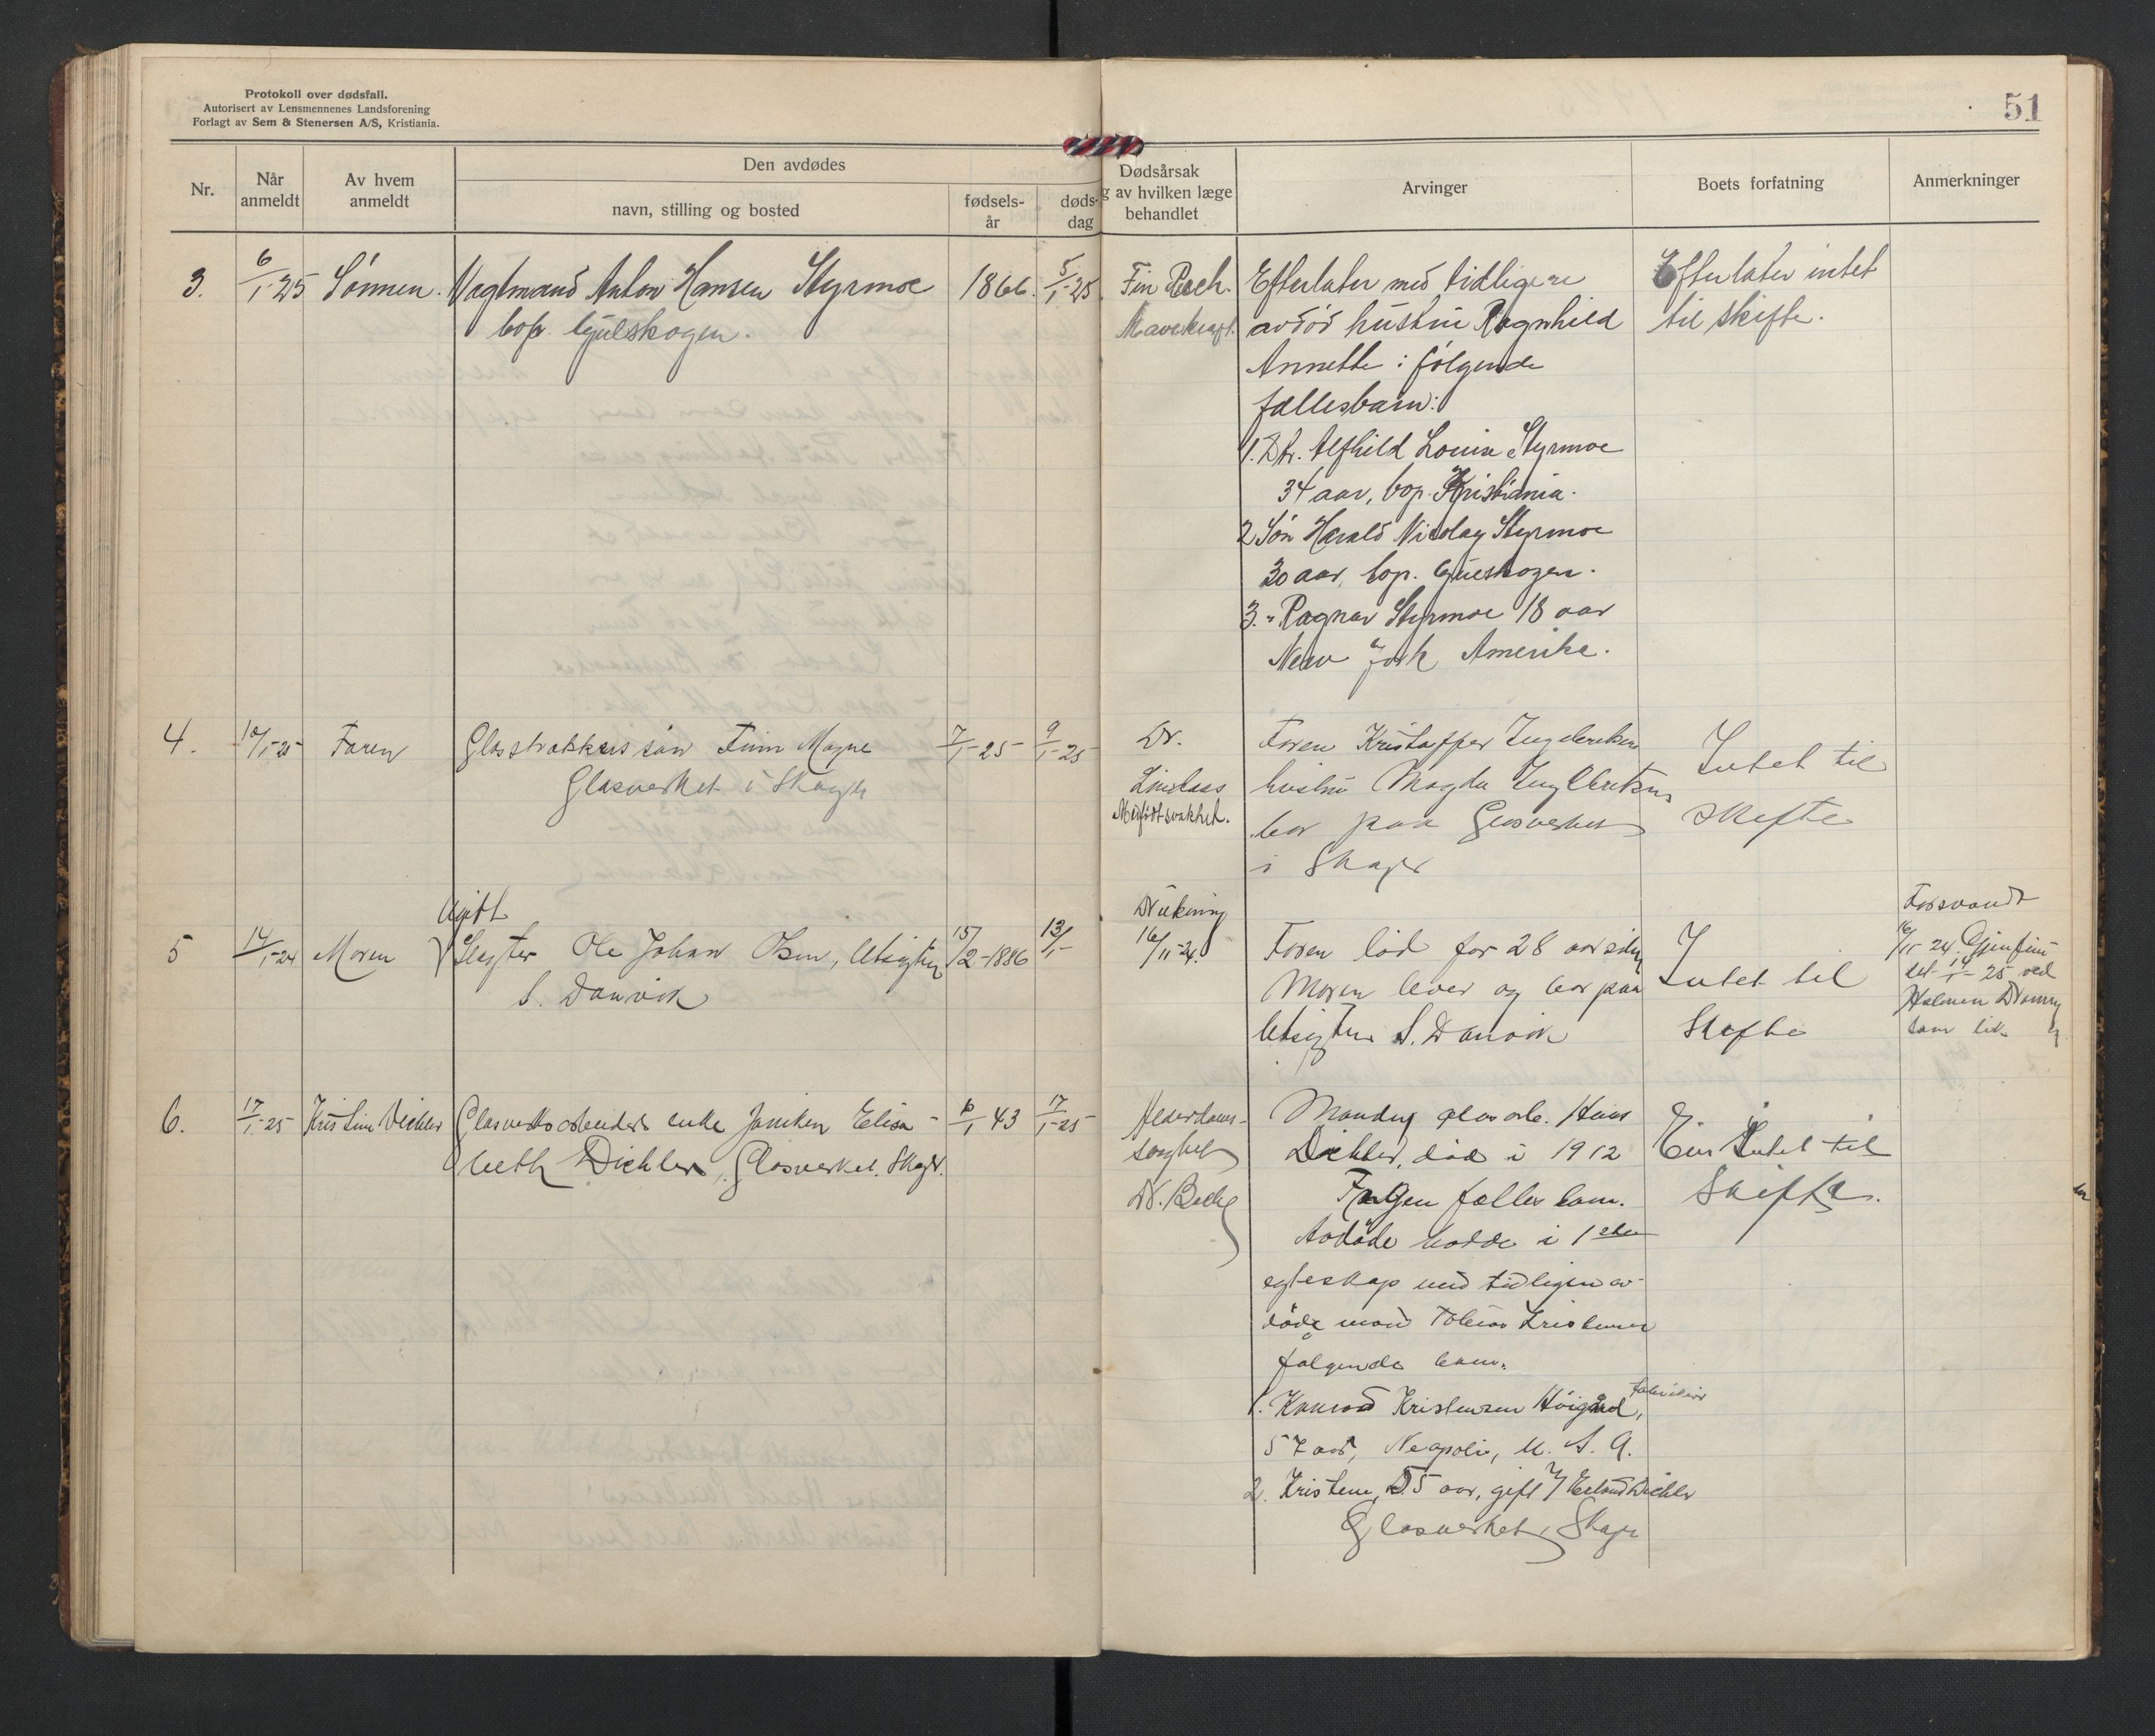 Protokoll over dødsfall.
Autorisert av Lensmennenes Landsforening
Forlagt av Sem & Stenersen A/S, Kristiania.
51
Nr.
Når anmeldt
Av hvem anmeldt
Den avdødes
navn, stilling og bosted
fødsels-år
døds-dag
Dødsårsak
g av hvilken læge
behandlet
Arvinger
Boets forfatning
Anmerkninger
3.
6/1-25
Sønnen.
Vagtmand Anton Hansen Styrmoe
bop. Gulskogen.
1866.
5/1-25
Fin
Efterlater med tidligere
avdød hustru Ragnhild
Annette : følgende
fællesbarn:
1. Dtr. Alfhild Louise Styrmoe
34 aar, bop. Kristiania.
2 Søn Harald Nicolay Styrmoe
30 aar, bop. Gulskogen.
3. " Ragnar Styrmoe 18 aar
New York Amerika.
Efterlater intet
til skifte.
4.
10/1-25
Faren
søn Finn Magne
Glasverket i Skoger
7/1-25
9/1-25
Dr.
Medfødt svakhet.
Faren Kristoffer
hustru Magda
bor paa Glasverket
i Skoger
Intet til
skifte
5
14/1-24
Moren
Ugift
Slagter Ole Johan Olsen, Utsigten
S. Danvik
15/2-1886
13/1-
Drukning
16/11-24.
Faren død for 28 aar siden
Moren lever og bor paa
Utsigten S. Danvik
Intet til
Skifte
Forsvandt
16/11-24. Gjenfun-
det 14/1-25 ved
Holmen Drammen
som lik
6.
17/1-25
Kristine Dichler
Glasverksarbeider enke Janiken Elisa-
beth Dichler, Glasverket, Skoger.
6/1 43
17/1-25
Alderdoms-
svaghet
Dr.
Manden glasarb. Hans
Dichler, død i 1912
Ingen fælles barn.
Avdøde hadde i 1ste
egteskap med tidligere av-
døde mand Tobias Kristensen
følgende barn.
1. Konrad Kristensen Høigård,
57 aar, Neapolis, U. S. A.
2. Kristine, 55 aar, gift m/ Dichler
Glasverket, Skoger
Eier Intet til
Skifte.